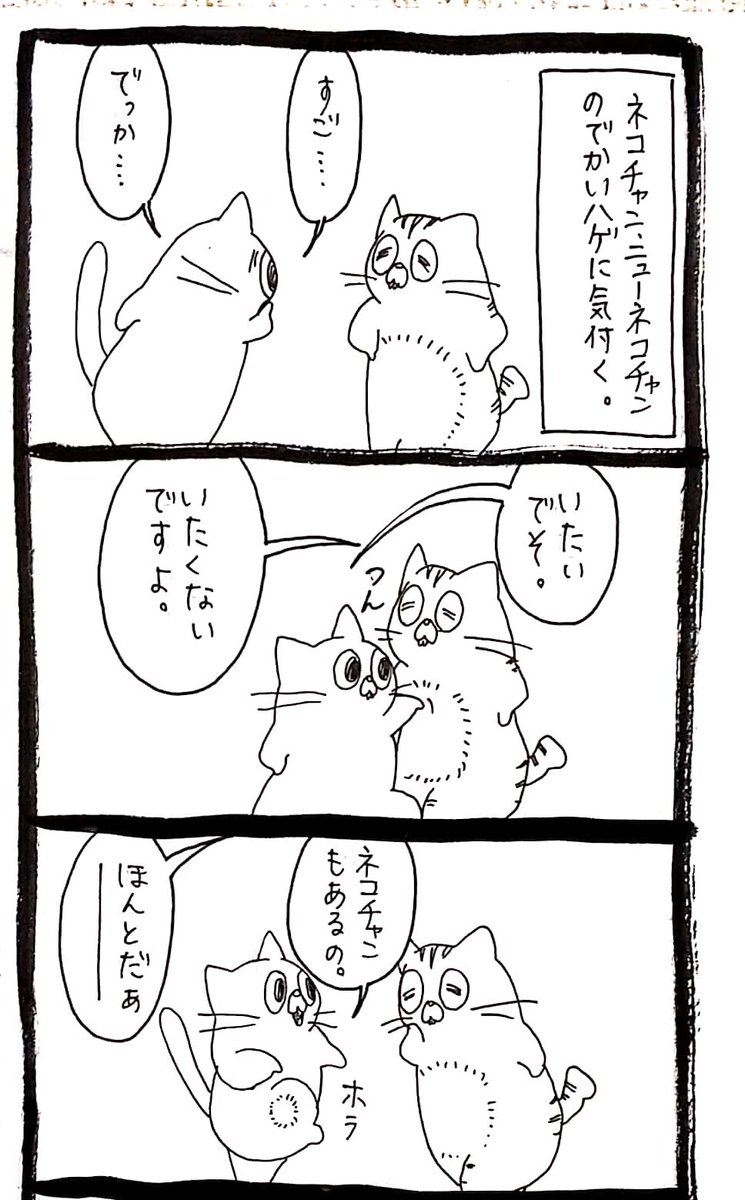 ネコチャン、ニューネコチャン
のでかいハゲに気付く。
すご…
でっか…
いたい
でそ。
つん
いたくない
ですよ。
ネコチャン
もあるの。
ホラ
ほんとだぁ